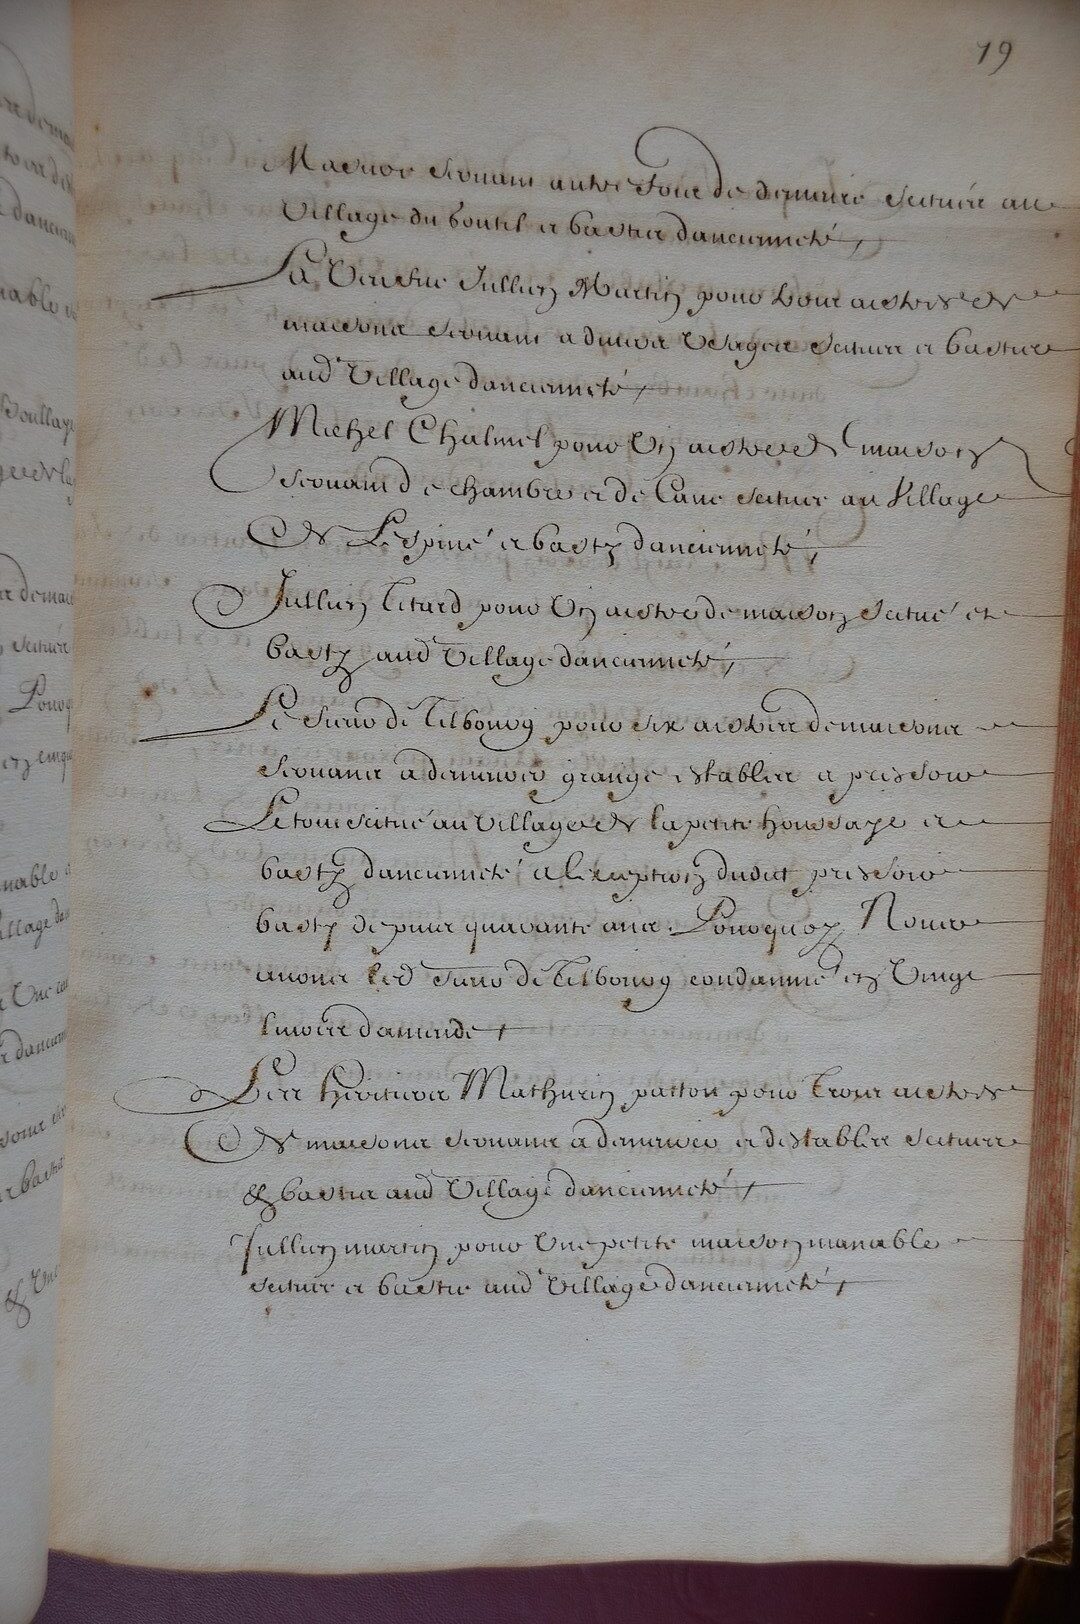 79
Masure servant autre fois de demeure scituée au
Village du boutil et bastie d'ancienneté,
La Veusve Jullien Martin pour trois aistres de
maisons servans a divers usages scituez et bastie
aud Village d'ancienneté,
Michel Chalmel pour Un aistre de maison
servant de chambre et de Cave scitué au Village
de Lespiné et basty d'ancienneté,
Jullien Letard pour Un aistre de maison scitué et
basty aud Village d'ancienneté,
Le Sieur de Tilbourg pour six aistres de maisons
servans a demeurer grange estables et pressoir
Le tout scitué au Village de la petite houssaye et
basty d'ancienneté a l'exception dudict pressoir
basty depuis quarante ans. Pourquoy Nous
avons led Sieur de Tilbourg condamné en Vingt
livres d'amende,
Les heritiers Mathurin patton pour trois aistres
de maisons servans a demeurer et d'estables scituez
& bastis aud Village d'ancienneté,
Jullien martin pour Une petite maison manable
scituée et bastie aud Village d'ancienneté,